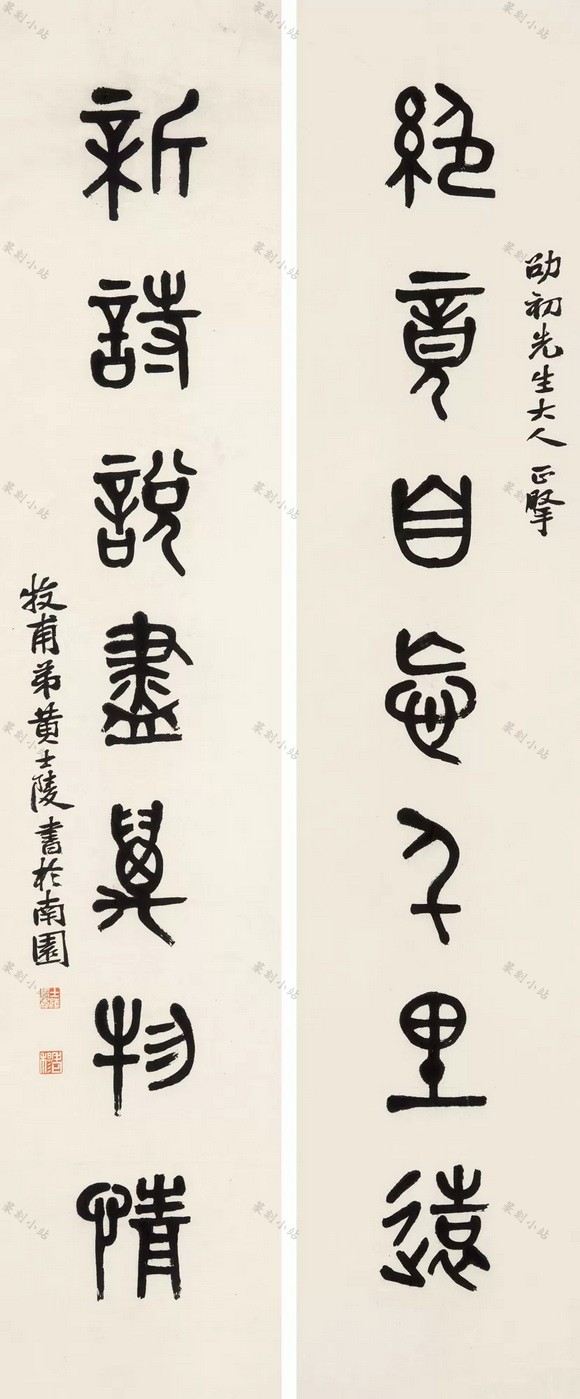 劭初先生大人 正掔
絕竟自忘千里遠
新詩說盡萬物情
牧甫弟黃士陵書於南園
篆刻小站